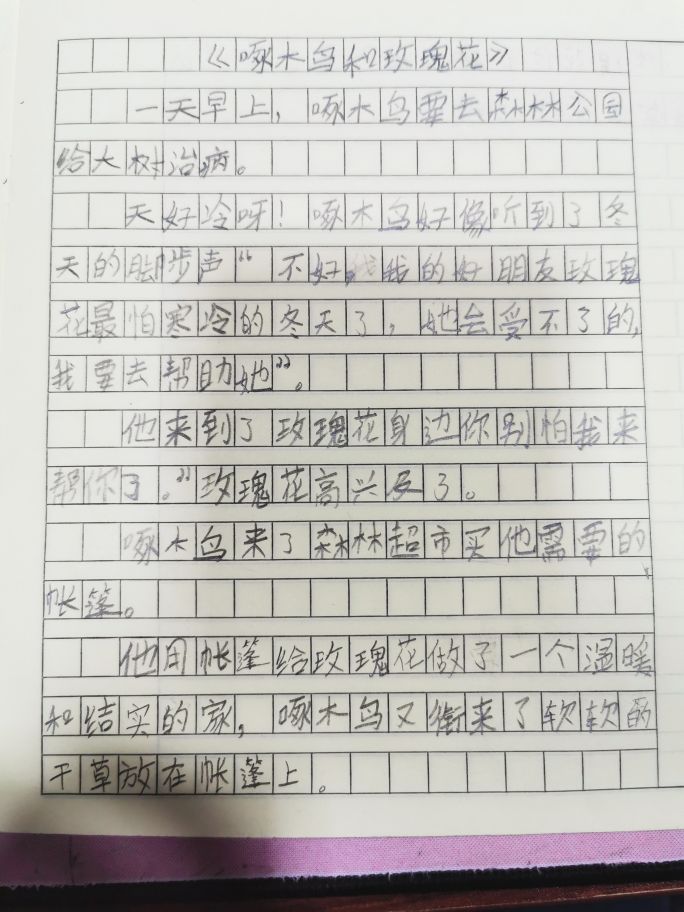 《啄木鸟和玫瑰花》
一天早上，啄木鸟要去森林公园
给大树治病。
天好冷呀！啄木鸟好像听到了冬
天的脚步声“不好，我的好朋友玫瑰
花最怕寒冷的冬天了，她会受不了的，
我要去帮助她”。
他来到了玫瑰花身边你别怕我来
帮你了。”玫瑰花高兴及了。
啄木鸟来了森林超市买他需要的
帐篷。
他用帐篷给玫瑰花做了一个温暖
和结实的家，啄木鸟又衔来了软软的
干草放在帐篷上。